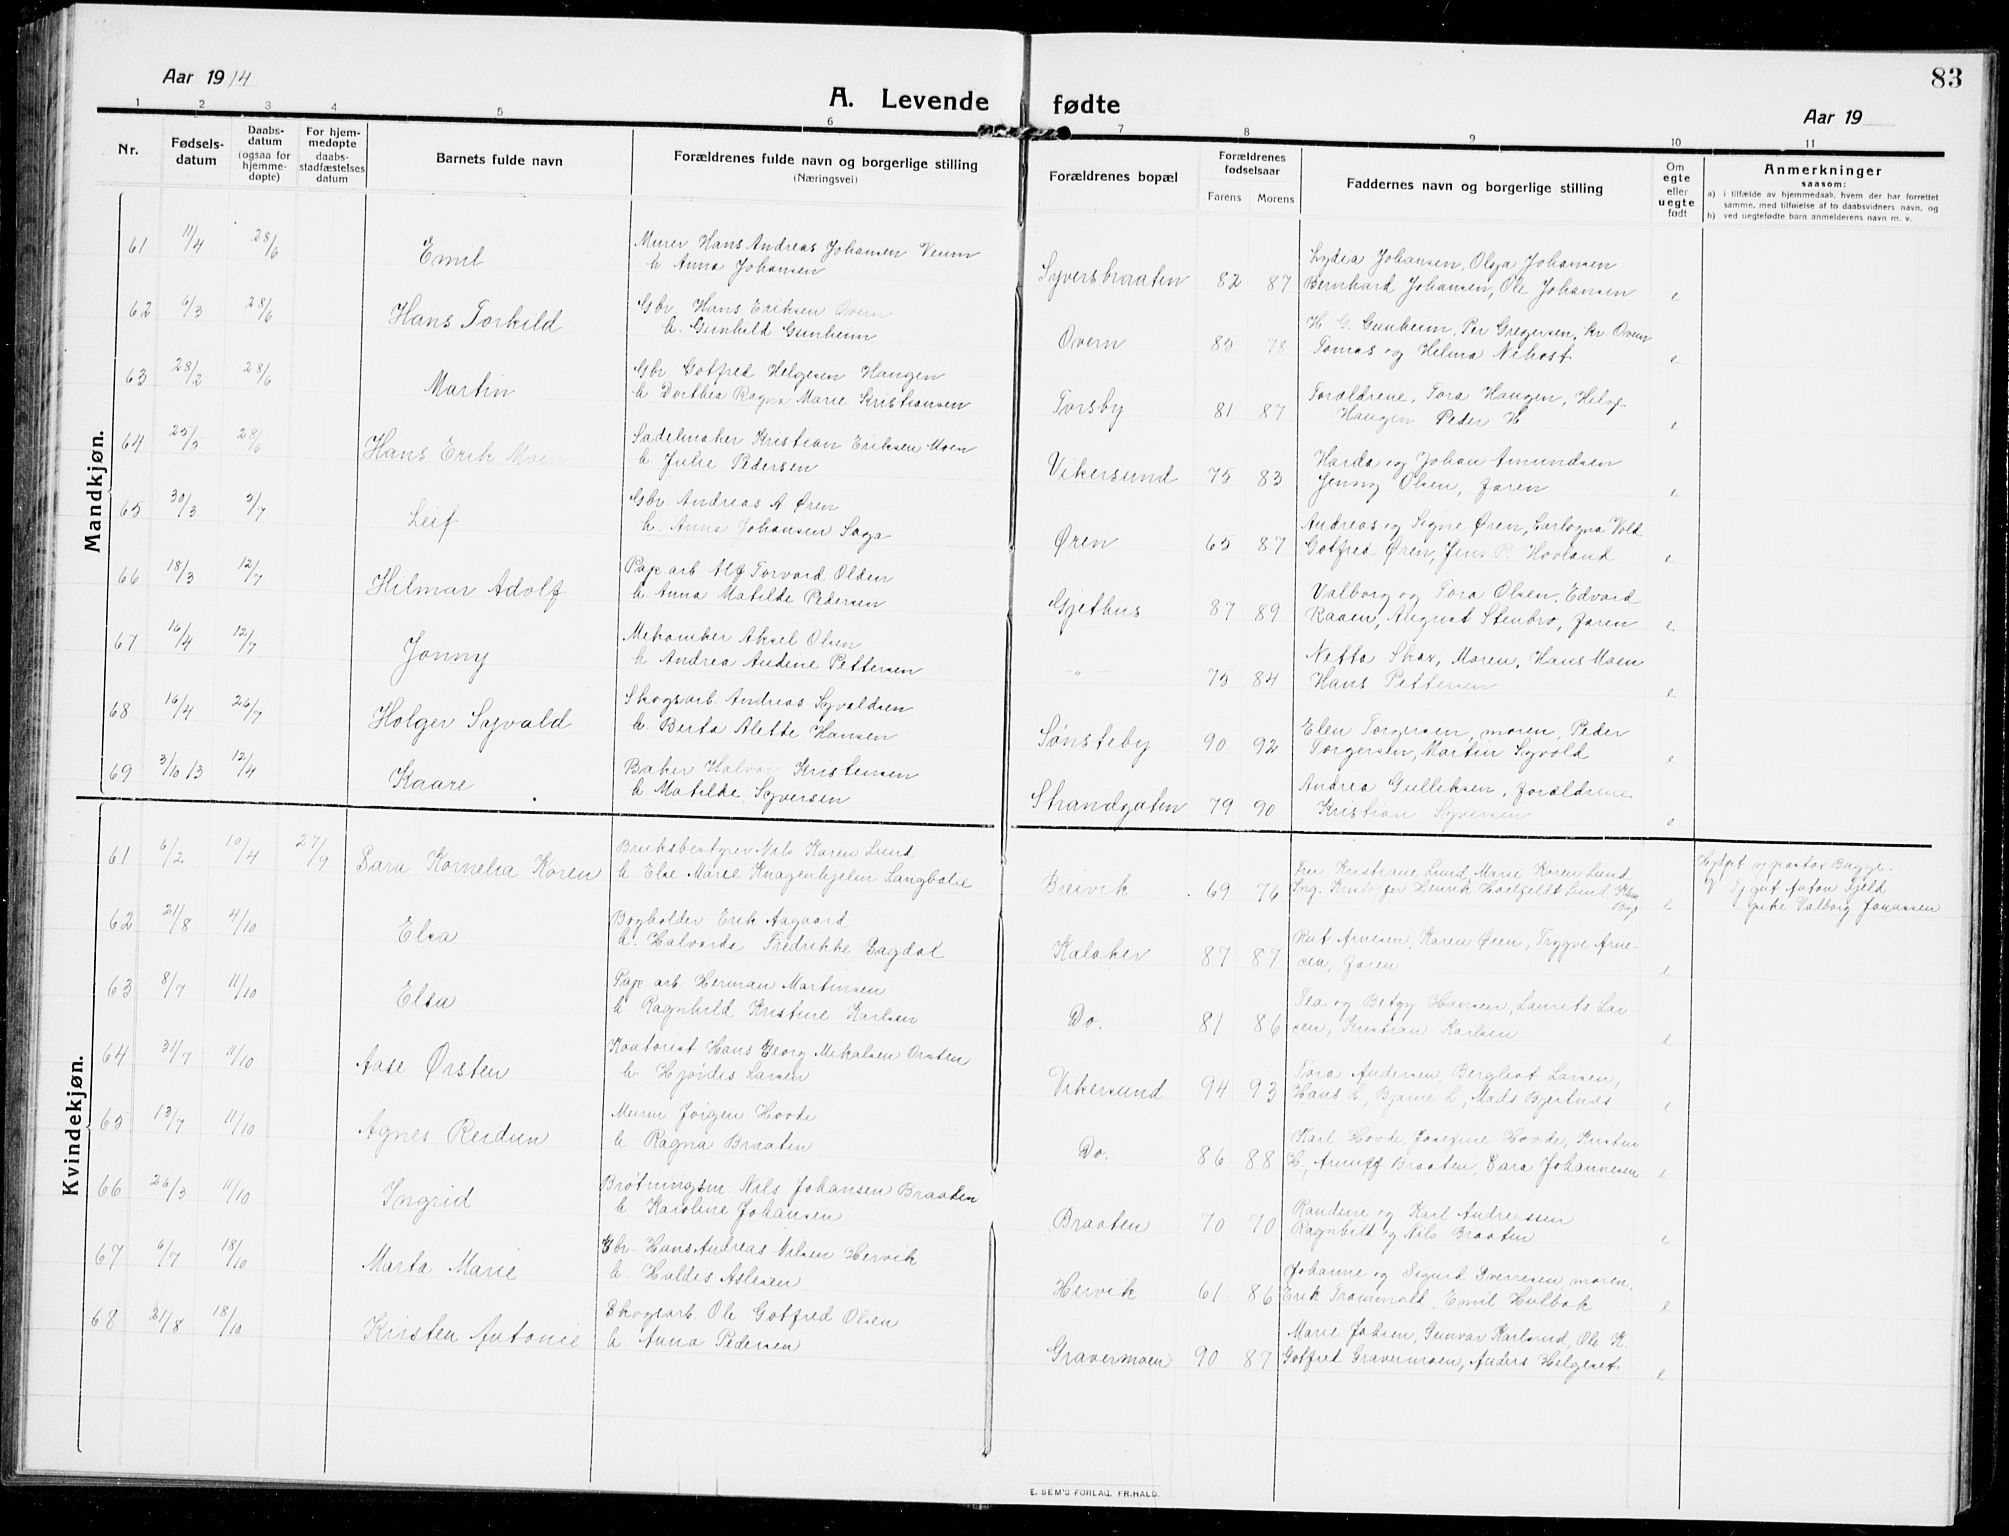 83
Aar 1914
A. Levende fødte
Aar 19
1 2 3 4 5 6 7 8 9 10 11
Nr.
Fødsels-
datum
Daabs-
datum
(ogsaa for
hjemme-
døpte)
For hjem-
medøpte
daabs-
stadfæstelses
datum
Barnets fulde navn
Forældrenes fulde navn og borgerlige stilling
(Næringsvei)
Forældrenes bopæl
Forældrenes
fødselsaar
Farens Morens
Faddernes navn og borgerlige stilling
Om
egte
eller
uegte
født
Anmerkninger
saasom:
a) i tilfælde av hjemmedaab, hvem der har forrettet
samme, med tilføielse af to daabsvidners navn, og
b) ved uegtefødte barn anmelderens navn m. v.
Mandkjøn.
61 11/4 28/6 Emil
Murer Hans Andreas Johansen Veum
h Anna Johansen
Syversbraaten 82 87
Lydia Johansen, Olga Johansen
Bernhard Johansen, Ole Johansen e
62 6/3 28/6 Hans Torkild
Gbr Hans Eriksen Overn
h. Gunhild Gunheim
Overn 85 78
H. G. Gunheim, Per Gregersen, Kr Overn
Tomas og Helma e
63 28/2 28/6 Martin
Gbr Gotfred Helgesen Haugen
h Dorthea Ragna Marie Kristiansen
Torsby 81 87
Forældrene, Tora Haugen, Helge
Haugen Peder H e
64 25/5 28/6 Hans Erik Moen
Sadelmaker Kristian Eriksen Moen
h. Julie Pedersen
Vikersund 75 83
Harda og Johan Amundsen
Jenny Olsen, faren e
65 30/3 5/7 Leif
Gbr Andreas A. Øren
h. Anna Johansen Saga
Øren 65 87
Andreas og Signe Øren, Vold
Gotfred Øren, Jens P. Hovland e
66 18/3 12/7 Hilmar Adolf
Pap arb Alf Torvard Olden
h. Anna Matilde Pedersen
Gjethus 87 89
Valborg og Tora Olsen, Edvard
Raaen, August Stenbro, faren e
67 16/4 12/7 Jonny
Mekaniker Aksel Olsen
h Andrea Andine Pettersen
" — 75 84
Netta Skar, Moren, Hans Moen
Hans Pettersen e
68 16/4 26/7 Holger Syvald
Skogsarb. Andreas Syvaldsen
h. Berta Alette Hansen
Sønsteby 90 92
Elen Torgersen, moren, Peder
Torgersen, Martin Syvold e
69 3/10 13 12/4 Kaare
Baker Halvor Kristensen
h Matilde Syversen
Strandgaten 79 90
Andrea Gulliksen, forældrene
Kristian Syversen e
Kvindekjøn.
61 6/2 10/4 27/9 Sara Kornelia Koren
Bruksbestyrer Nils Koren Lund
h. Else Marie Knagenhjelm Langballe
Breivik 69 76
Fru Kristiane Lund, Marie Koren Lund
Ing. Kristoffer Henrik Lund e
Hjdøpt v pastor Bugge.
V Anton Fjeld
Valborg Jonassen
62 21/8 4/10 Elsa
Bogholder Erik Aagaard
h. Halvarda Fredrikke Dagdal
Kalaker 87 87
Rut Arnesen, Karen Øren, Trygve Arne-
sen, faren e
63 8/7 11/10 Elsa
Pap arb Herman Martinsen
h Ragnhild Kristine Karlsen
Do. 81 86
Tea og Betzy Hansen, Laurits Lar-
sen, Kristian Karlsen e
64 31/7 11/10 Aase Ørsten
Kontorist Hans Georg Mikalsen Ørsten
h Hjørdis Larsen
Vikersund 94 93
Tora Andersen, Bergliot Larsen,
Hans L, Bjarne L, Mads Bjertnæs e
65 13/7 11/10 Agnes Reidun
Murer Jørgen Hovde
h Ragna Braaten
Do. 86 88
Karl Hovde, Josefine Hovde, Kristine
H, Braaten, Sara Johannesen e
66 26/3 11/10 Ingrid
Brøtningsm. Nils Johansen Braaten
h Karoline Johansen
Braaten 70 70
Randine og Karl Andreassen
Ragnhild og Nils Braaten e
67 6/7 18/10 Marta Marie
Gbr. Hans Andreas Nilsen Hervik
h. Haldis Aslesen
Hervik 61 86
Johanne og Sigurd Sverresen moren,
Erik Emil Hulbak e
68 21/8 18/10 Kirsten Antonie
Skogsarb. Ole Gotfred Olsen
h Anna Pedersen
Gravermoen 90 87
Marie Johsen, Gunvor Karlsrud, Ole K.
Gotfred Gravermoen, Anders Helgeset e
E. SEM'S FORLAG, FR.HALD.